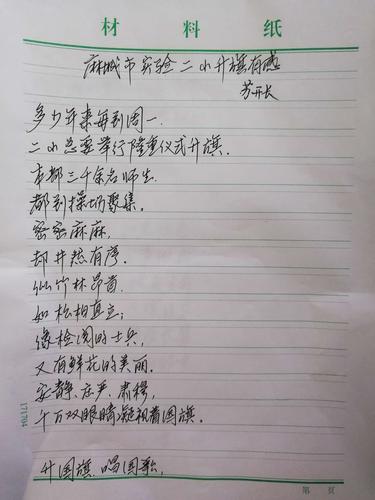 材料纸
麻城市实验二小升旗有感
苏开长
多少年来每到周一.
二小总要举行隆重仪式升旗.
本部三千余名师生.
都到操场聚集.
密密麻麻.
却井然有序.
似竹林昂首.
如松柏直立;
像检阅的士兵,
又有鲜花的美丽.
安静、庄严、肃穆,
千万双眼睛凝视着国旗.
升国旗.唱国歌,
171704
第 页